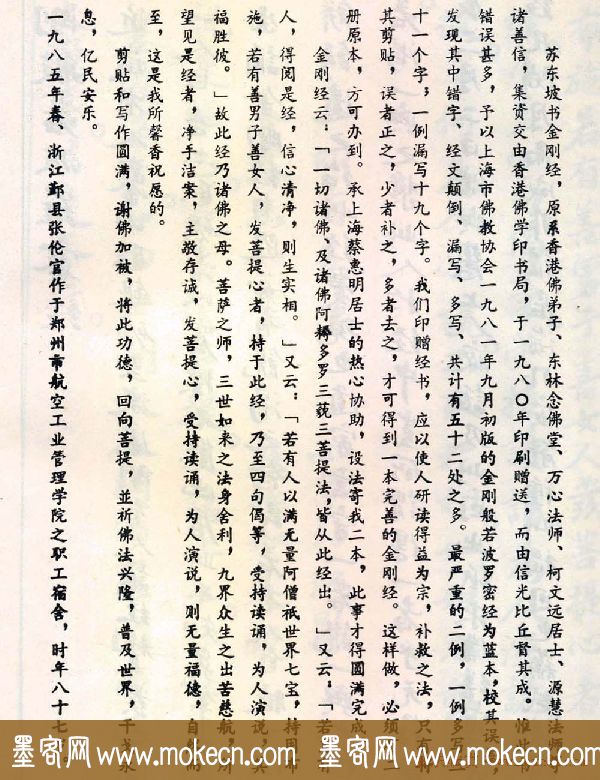 苏东坡书金刚经，原系香港佛弟子、东林念佛堂、万心法师、柯文远居士、源慧法师
诸善信，集资交由香港佛学印书局，于一九八〇年印刷赠送，而由信光比丘督其成。惟此
错误甚多，予以上海市佛教协会一九八一年九月初版的金刚般若波罗密经为蓝本，校其误
发现其中错字、经文颠倒、漏写、多写、共计有五十二处之多。最严重的二例，一例多写
十一个字；一例漏写十九个字。我们印赠经书，应以使人研读得益为宗，补救之法，只有
其剪贴，误者正之，少者补之，多者去之，才可得到一本完善的金刚经。这样做，必须二
册原本，方可办到。承上海蔡惠明居士的热心协助，设法寄我二本，此事才得圆满完成
金刚经云：「一切诸佛、及诸佛阿耨多罗三藐三菩提法，皆从此经出。」又云：「若
人，得闻是经，信心清净，则生实相。」又云：「若有人以满无量阿僧祇世界七宝，持用布
施，若有善男子善女人，发菩提心者，持于此经，乃至四句偈等，受持读诵，为人演说，其
福胜彼。」故此经乃诸佛之母。菩萨之师，三世如来之法身舍利，九界众生之出苦慈航。所
望见是经者，净手洁案，主敬存诚，发菩提心，受持读诵，为人演说，则无量福德，自
至，这是我所馨香祝愿的。
剪贴和写作圆满，谢佛加被，将此功德，回向菩提，並祈佛法兴隆，普及世界，干戈永
息，亿民安乐。
一九八五年春、浙江鄞县张伦官作于郑州市航空工业管理学院之职工宿舍，时年八十七
墨客网 www.mokecn.com 墨客网 www.mokecn.com